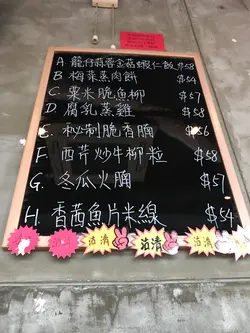 A. 籠仔蒜蓉金菇蝦仁飯 $58
B. 梅菜蒸肉餅 $54
C. 粟米脆魚柳 $57
D. 腐乳蒸雞 $58
E. 秘制脆有腩 $56
F. 西芹炒牛柳粒 $58
G. 冬瓜火腩 $57
H. 香茜魚片米線 $54
沽清
沽清
沽清